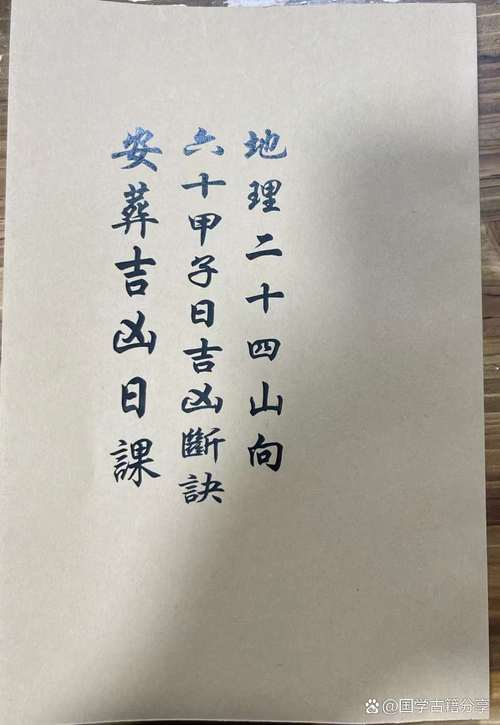 地理二十四山向
六十甲子日吉凶斷訣
安葬吉凶日課
国学古籍分享